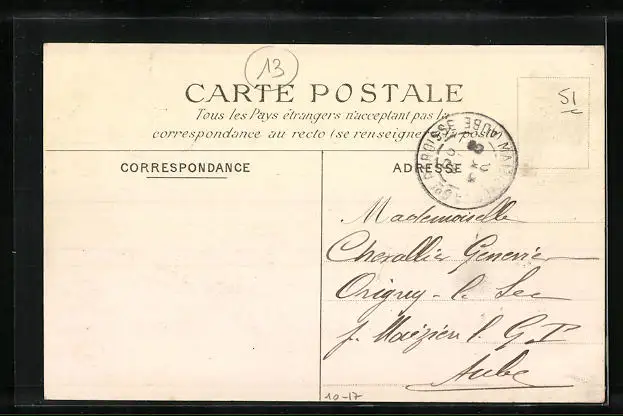 13
CARTE POSTALE
51
Tous les Pays étrangers n'acceptent pas la
correspondance au recto (se renseigner la poste)
CORRESPONDANCE
ADRESSE
AUBE
Mademoiselle
Chevallier Genevieve
Origny-le Sec
p. Maizières l. G. P.
Aube
10-17